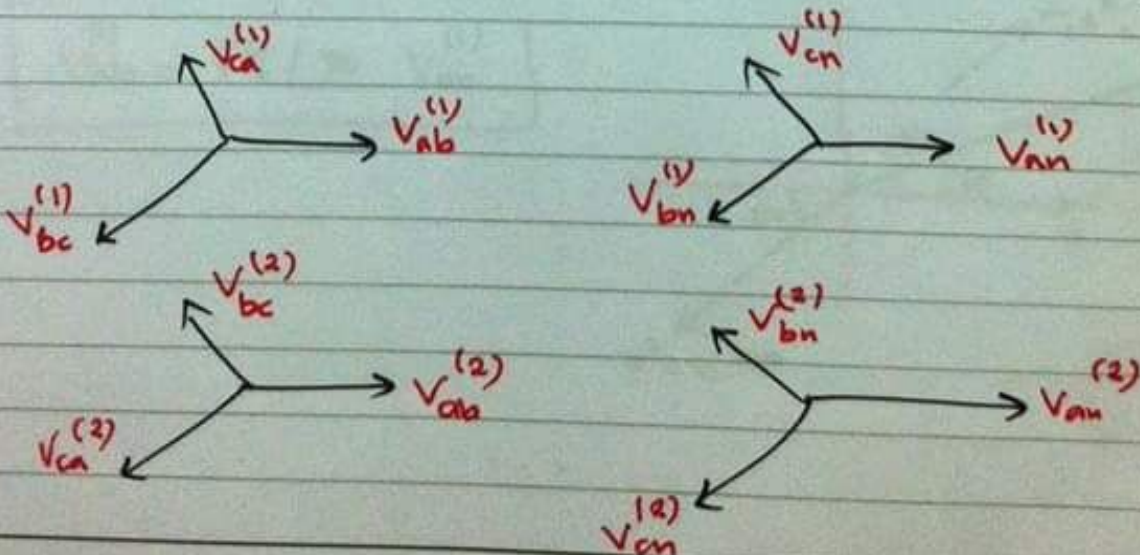 V_ca^(1)
V_ab^(1)
V_bc^(1)
V_cn^(1)
V_an^(1)
V_bn^(1)
V_bc^(2)
V_ab^(2)
V_ca^(2)
V_bn^(2)
V_an^(2)
V_cn^(2)